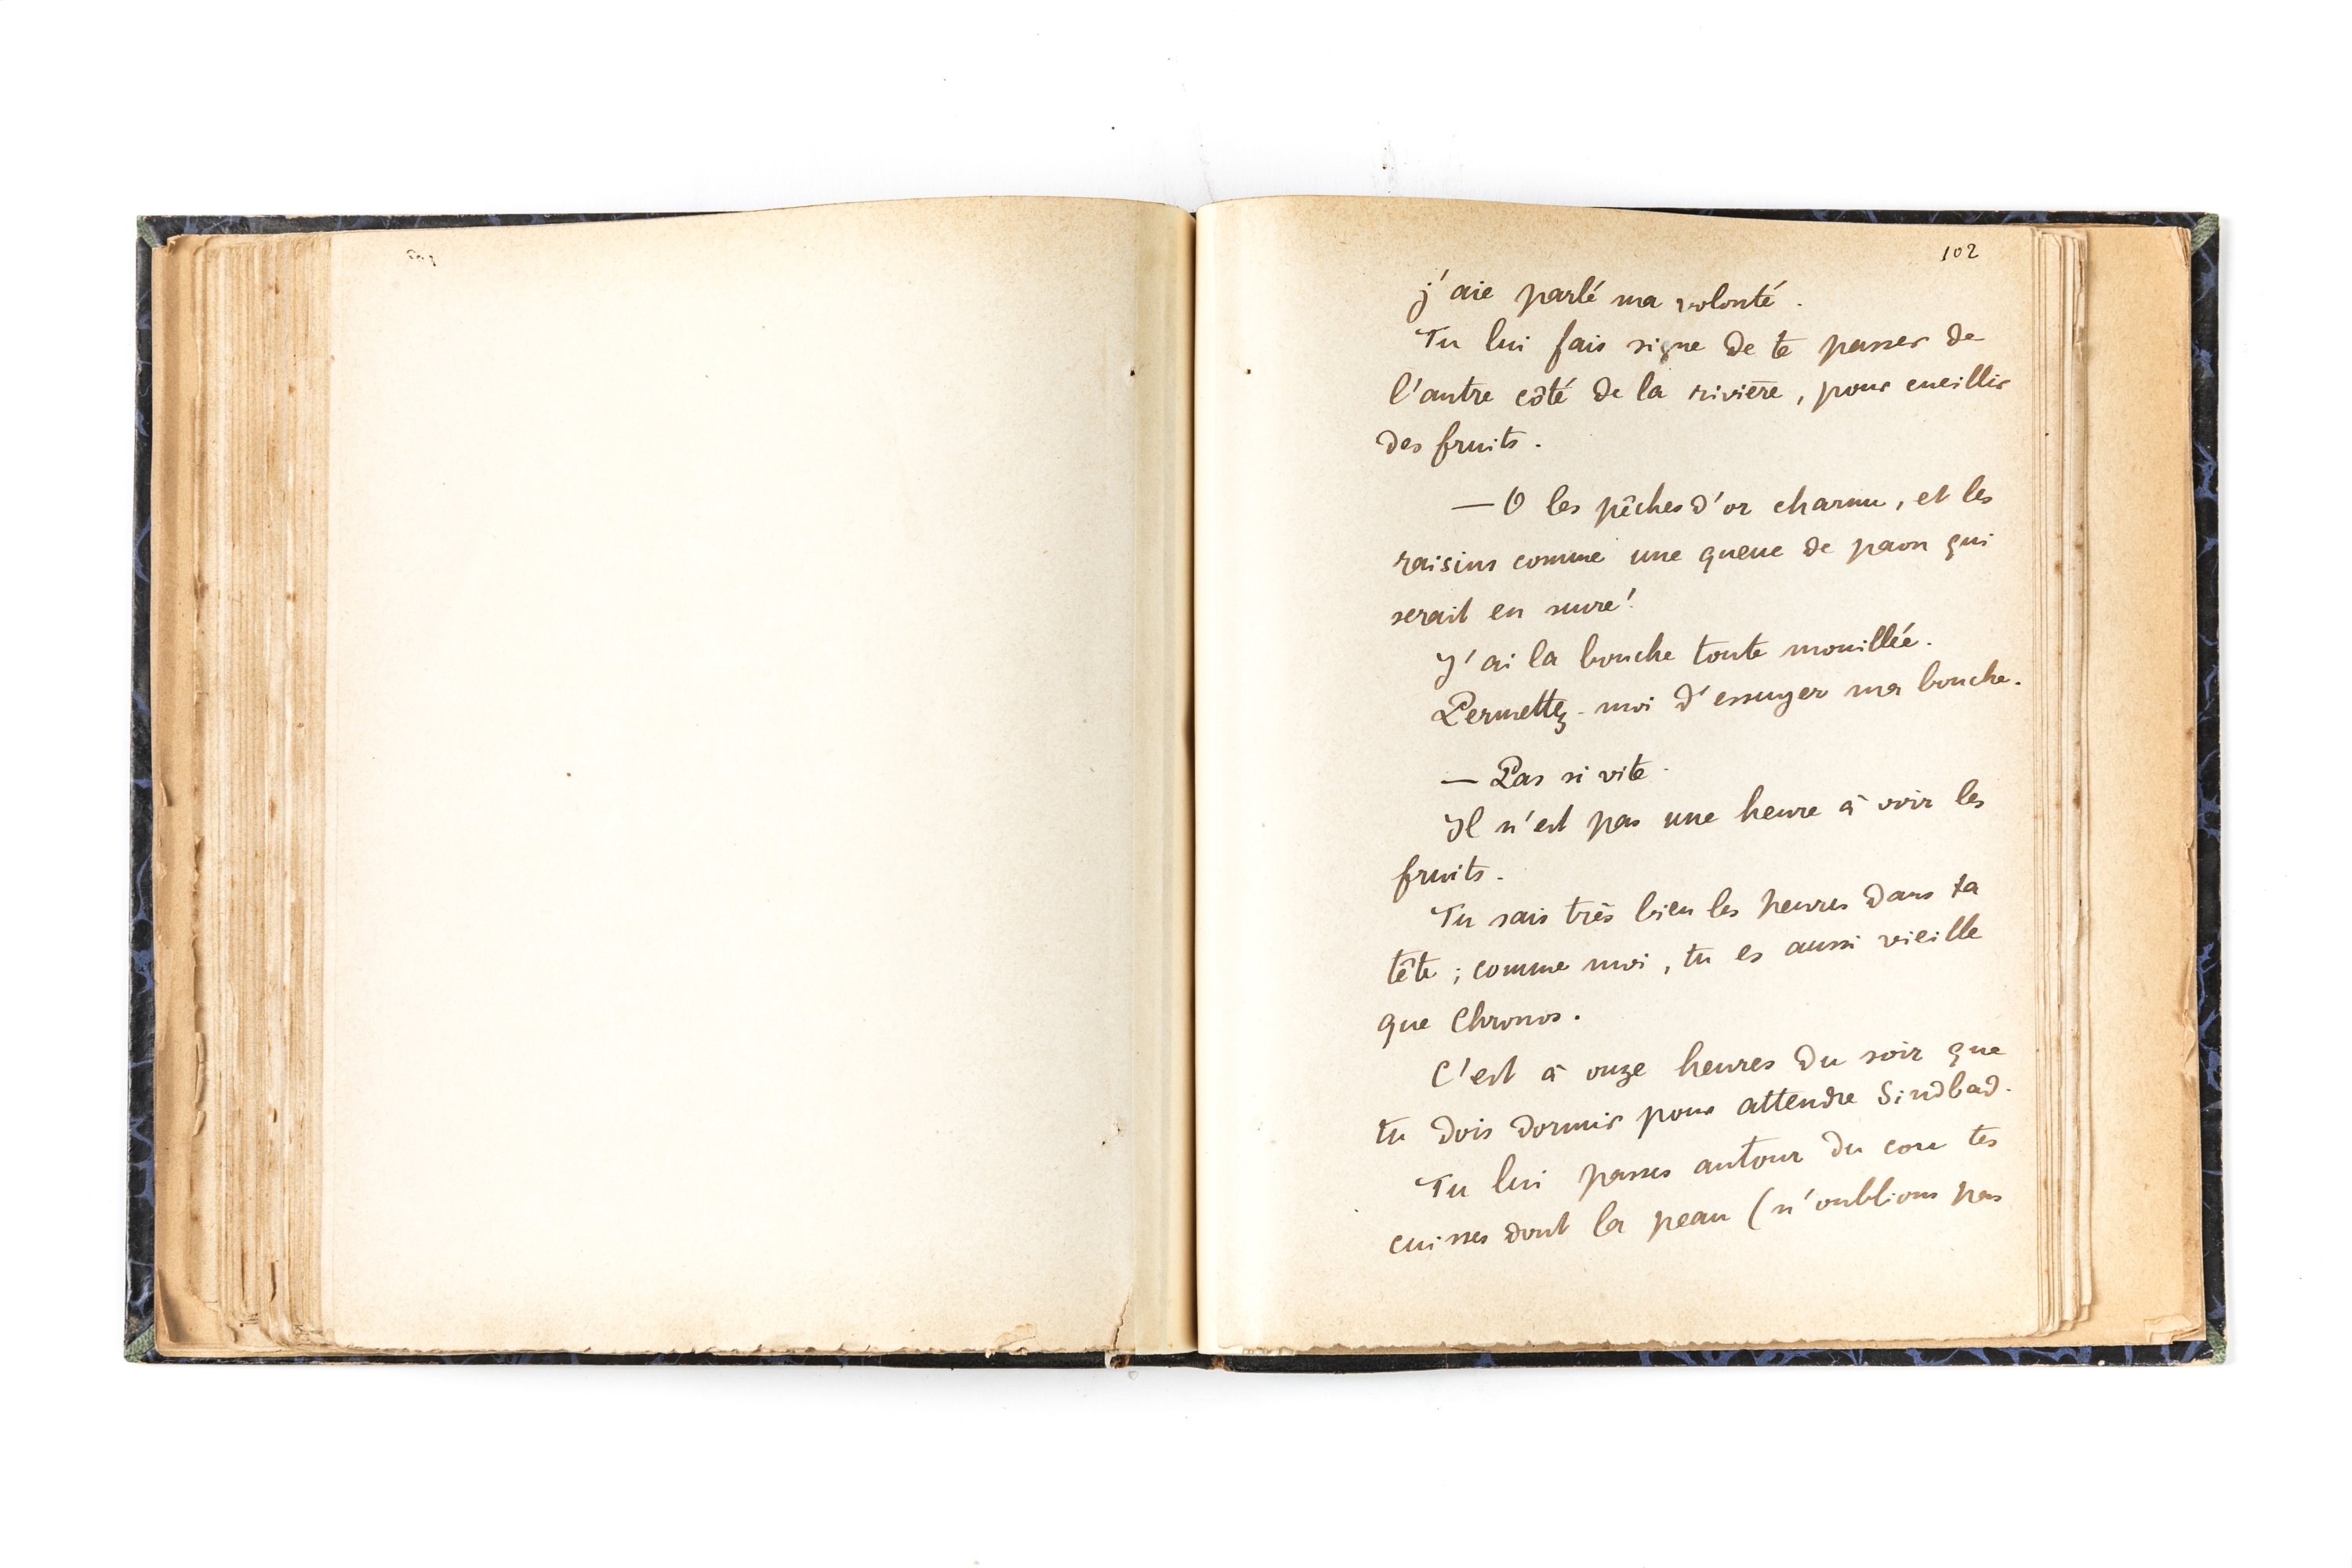 102
j'aie parlé ma volonté.
Tu lui fais signe de te passer de
l'autre côté de la rivière, pour cueillir
des fruits.
— O les pêches d'or charnu, et les
raisins comme une queue de paon qui
serait en mure!
J'ai la bouche toute mouillée.
Permettez-moi d'essuyer ma bouche.
— Pas si vite.
Il n'est pas une heure à voir les
fruits.
Tu sais très bien les heures dans ta
tête ; comme moi, tu es aussi vieille
que Chronos.
C'est à onze heures du soir que
tu dois dormir pour attendre Sindbad.
Tu lui passes autour du cou tes
cuisses dont la peau (n'oublions pas